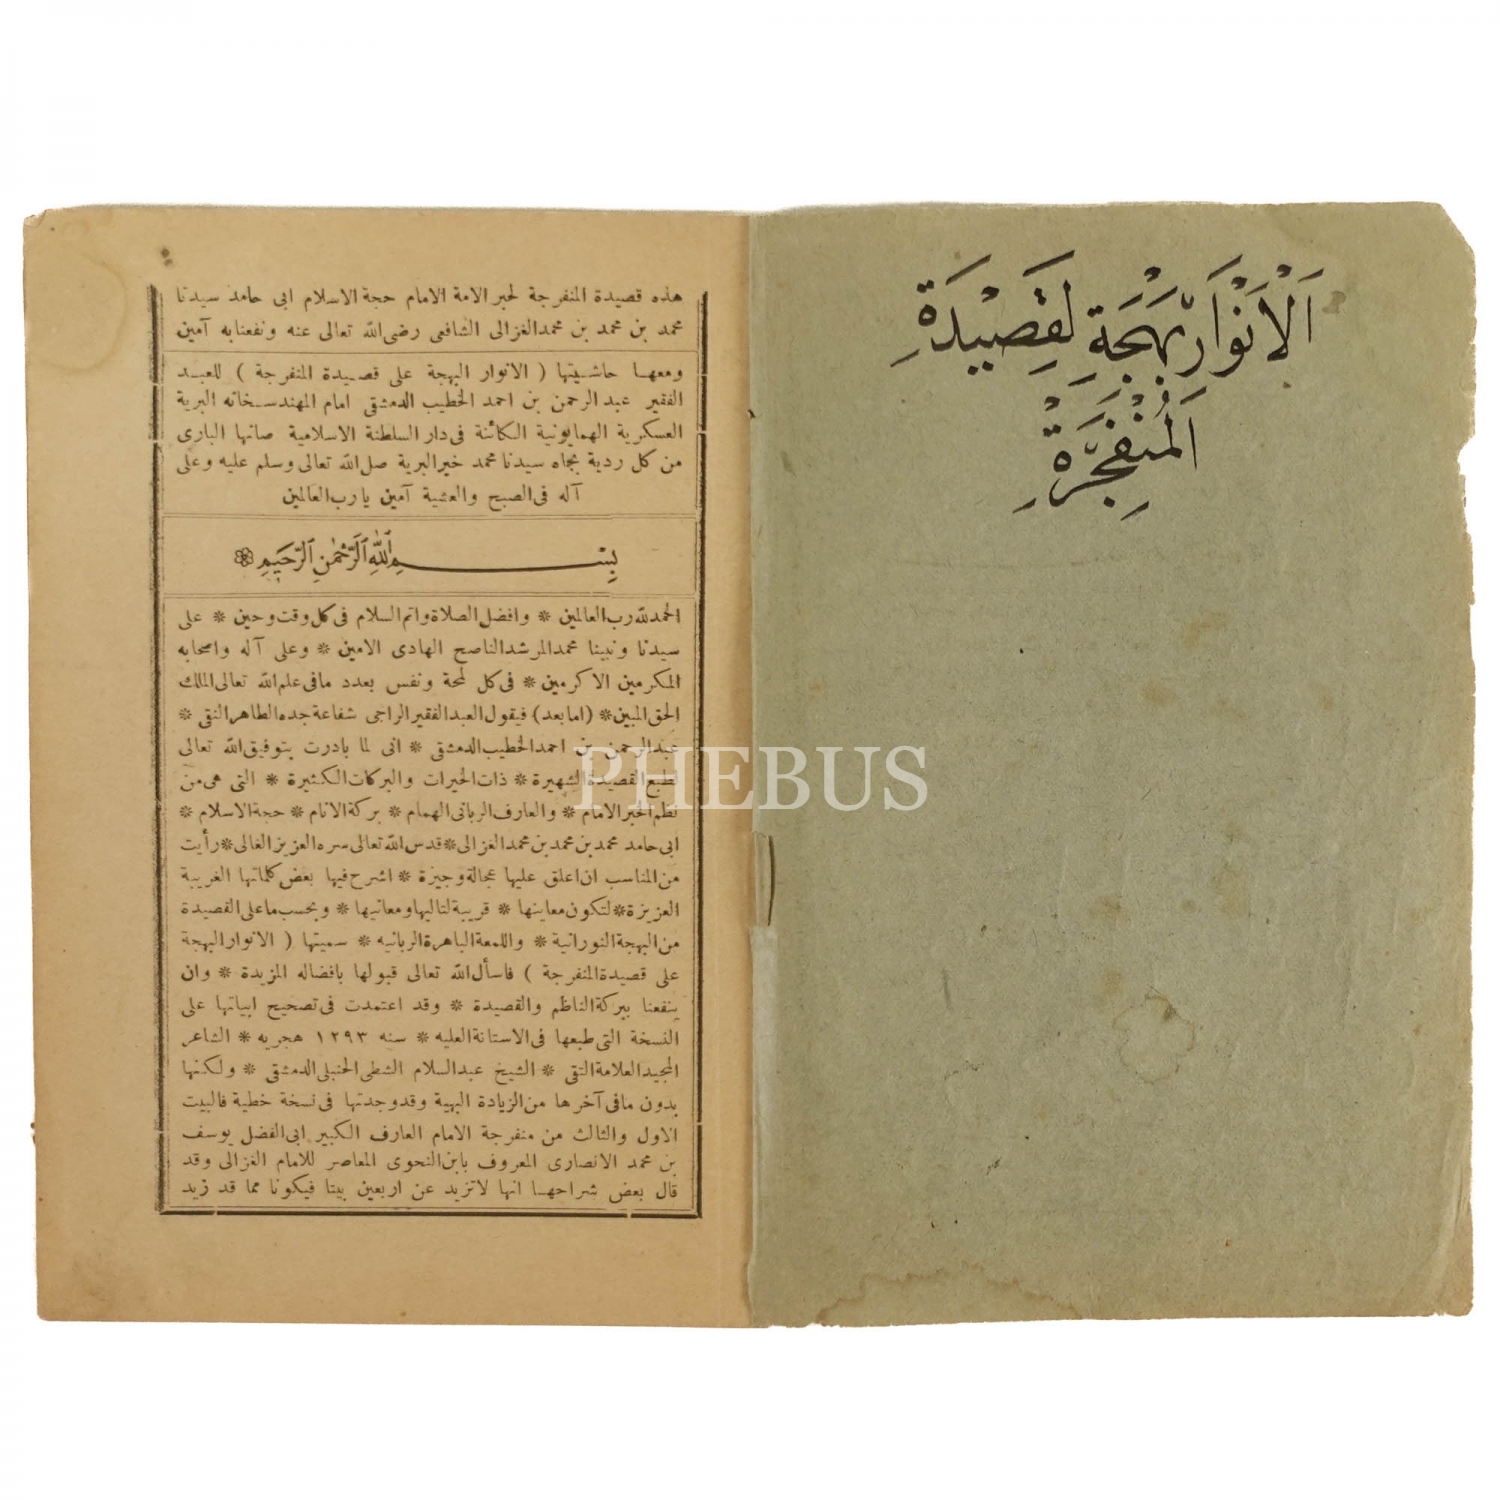 اَلْاَنْوَارُ بَهْجَةِ لِقَصِيْدَةِ
اَلْمُنْفَجِرَّةِ
هذه قصيدة المنفرجة لحبر الامة الامام حجة الاسلام ابى حامد سيدنا
محمد بن محمد بن محمد الغزالى الشافعى رضى الله تعالى عنه ونفعنا به آمين
ومعها حاشيتها ( الانوار البهجة على قصيدة المنفرجة ) للعبد
الفقير عبد الرحمن بن احمد الخطيب الدمشقى امام المهندسخانه البرية
العسكرية الهمايونية الكائنة فى دار السلطنة الاسلامية صانها البارى
من كل ردية بجاه سيدنا محمد خير البرية صل الله تعالى وسلم عليه وعلى
آله فى الصبح والعشية آمين يا رب العالمين
بِسْمِ اللهِ الرَّحْمٰنِ الرَّحِيمِ
الحمد لله رب العالمين * وافضل الصلاة واتم السلام فى كل وقت وحين * على
سيدنا ونبينا محمد المرشد الناصح الهادى الامين * وعلى آله واصحابه
المكرمين الاكرمين * فى كل لمحة ونفس بعدد مافى علم الله تعالى الملك
الحق المبين * (اما بعد) فيقول العبد الفقير الراجى شفاعة جده الطاهر النقى *
عبد الرحمن بن احمد الخطيب الدمشقى * انى لما بادرت بتوفيق الله تعالى
لطبع القصيدة الشهيرة * ذات الخيرات والبركات الكثيرة * التى هى من
نظم الحبر الامام * والعارف الربانى الهمام * بركة الانام * حجة الاسلام *
ابى حامد محمد بن محمد بن محمد الغزالى * قدس الله تعالى سره العزيز الغالى * رأيت
من المناسب ان اعلق عليها عجالة وجيزة * اشرح فيها بعض كلماتها الغريبة
العزيزة * لتكون معاينها * قريبة لتاليها ومعانيها * وبحسب ما على القصيدة
من البهجة النورانية * واللمعة الباهرة الربانيه * سميتها ( الانوار البهجة
على قصيدة المنفرجة ) فاسأل الله تعالى قبولها بافضاله المزيدة * وان
ينفعنا ببركة الناظم والقصيدة * وقد اعتمدت فى تصحيح ابياتها على
النسخة التى طبعها فى الاستانة العليه * سنه ١٢٩٣ هجريه * الشاعر
المجيد العلامة التقى * الشيخ عبد السلام الشطى الحنبلى الدمشقى * ولكنها
بدون مافى آخرها من الزيادة البهية وقد وجدتها فى نسخة خطية فالبيت
الاول والثالث من منفرجة الامام العارف الكبير ابى الفضل يوسف
بن محمد الانصارى المعروف بابن النحوى المعاصر للامام الغزالى وقد
قال بعض شراحها انها لاتزيد عن اربعين بيتا فيكونا مما قد زيد
PHEBUS